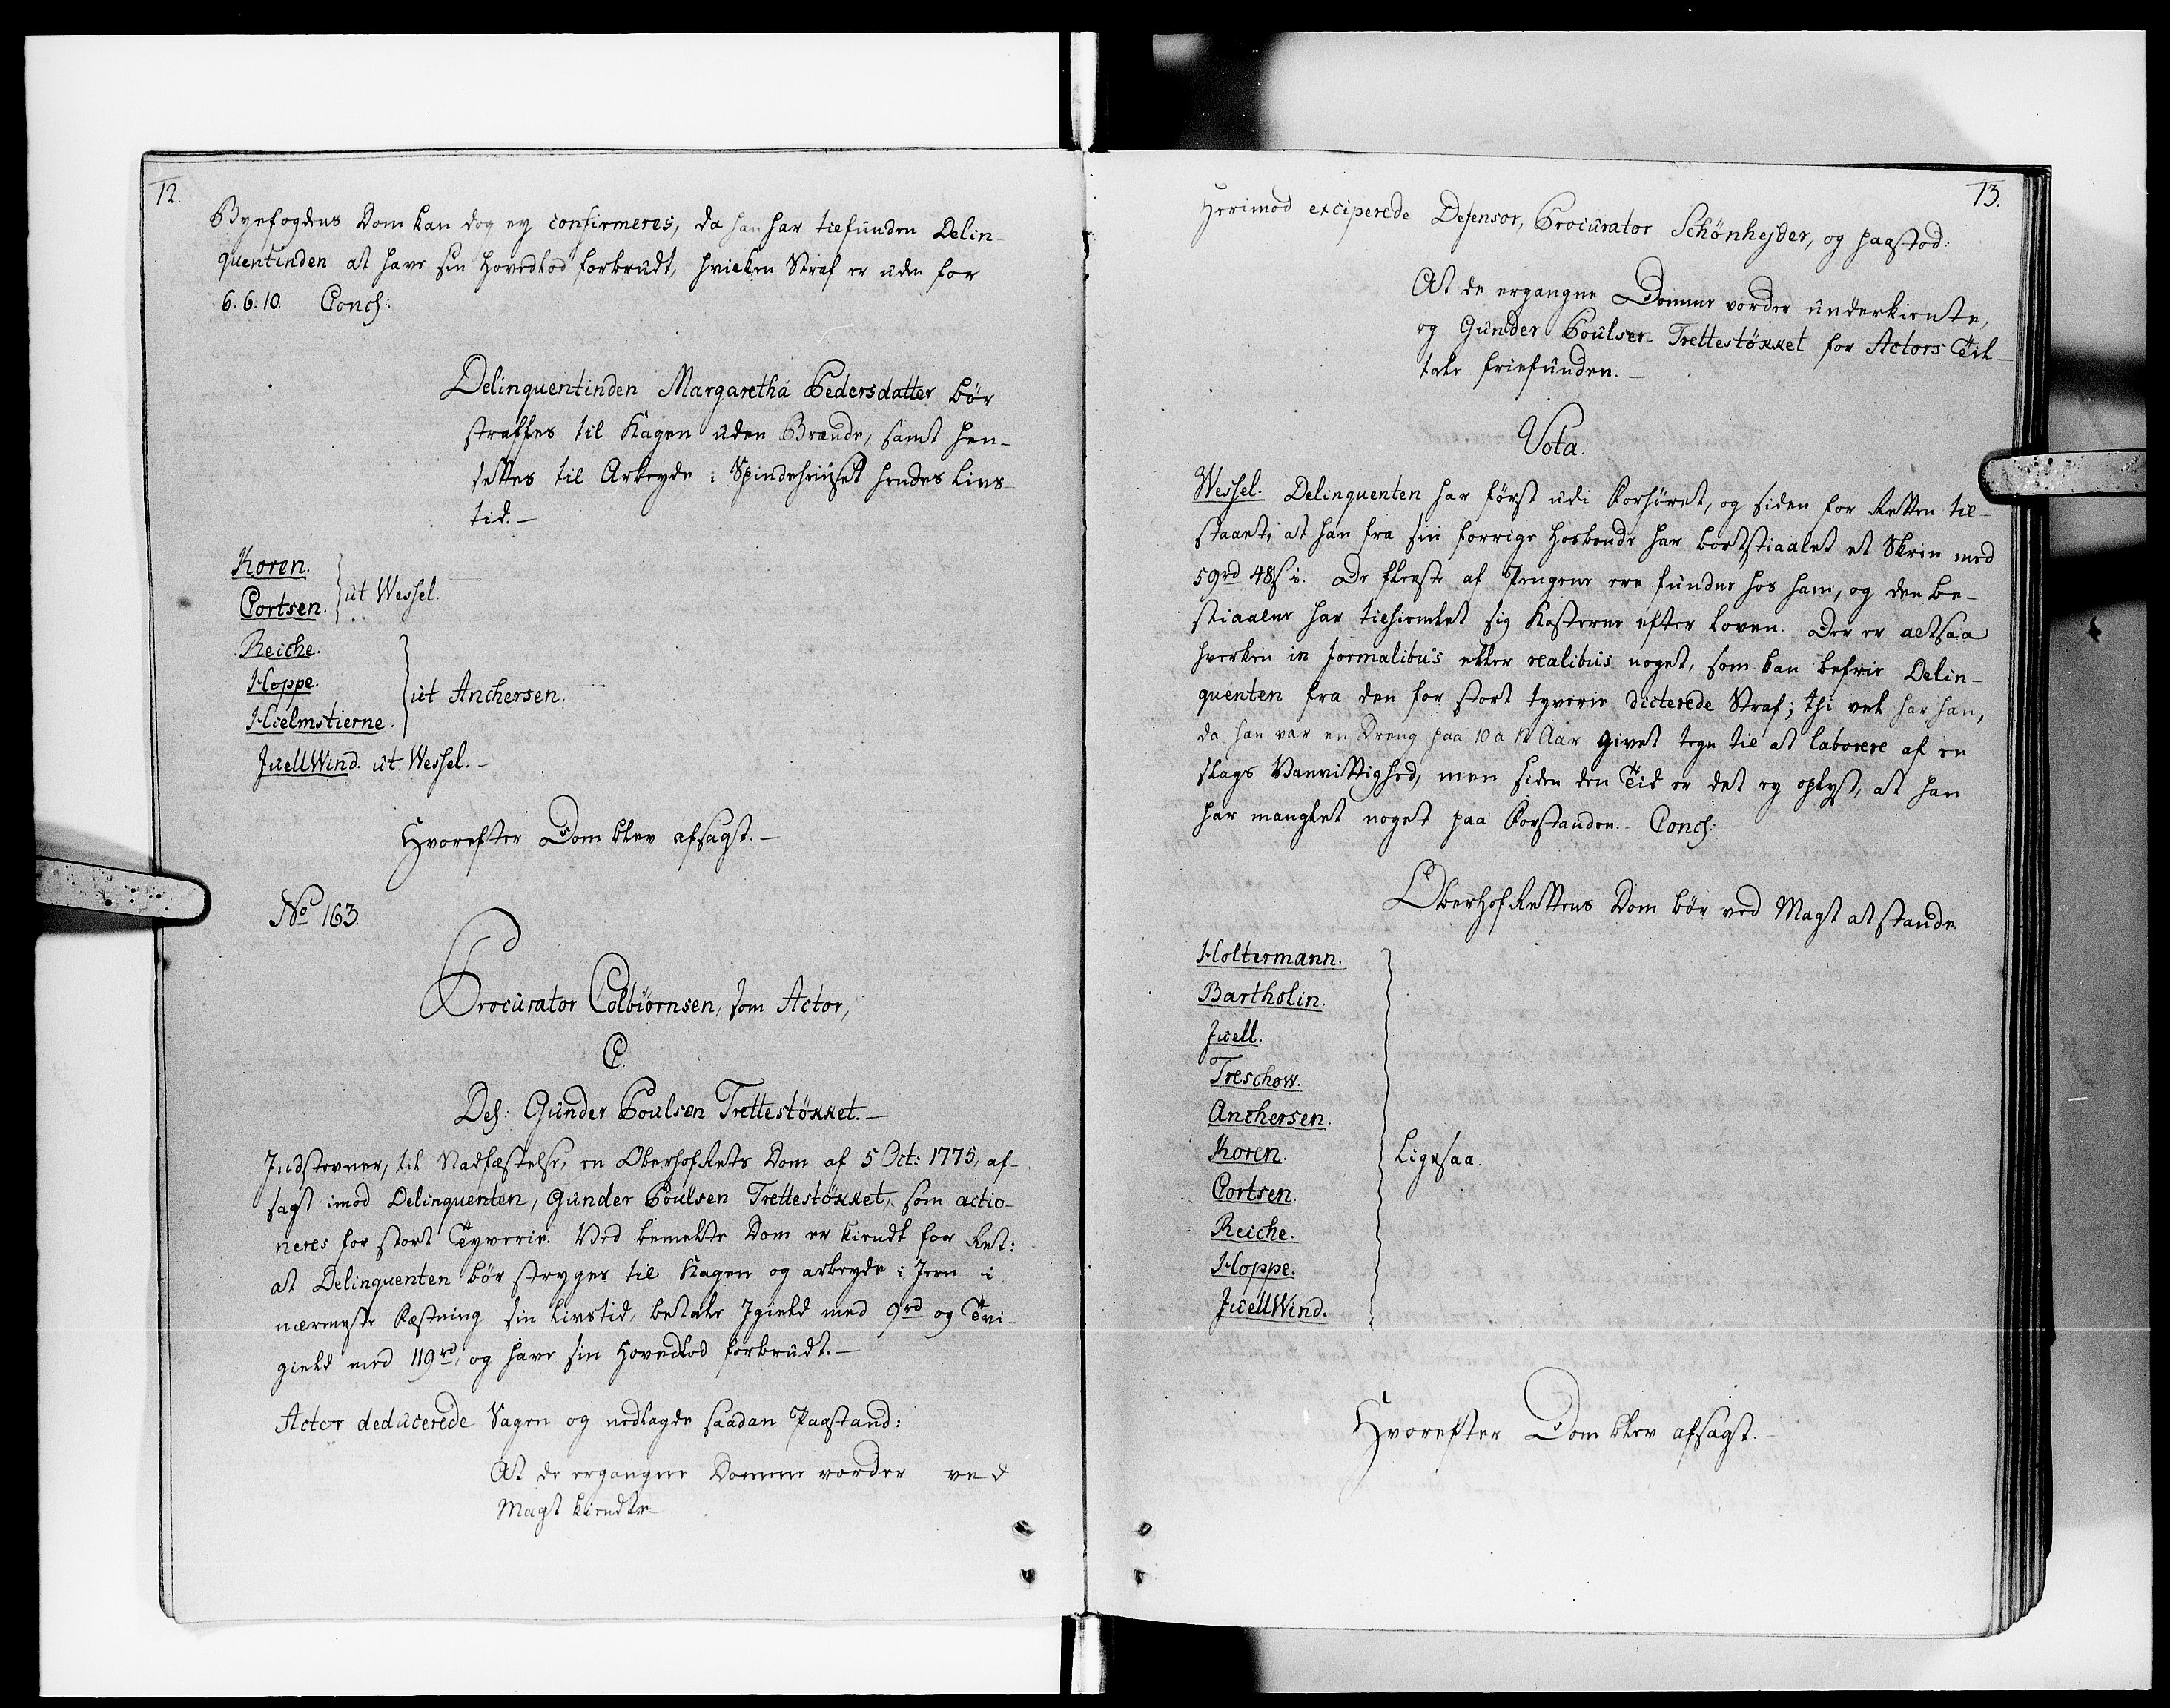 12.
Byefogdens Dom kan dog ey confirmeres, da han har tilfunden Delin-
quentinden at have sin Hovedlod forbrudt, hvilken Straf er uden for
6. 6. 10. Concl:
Delinquentinden Margaretha Pedersdatter bør
straffes til Kagen uden Brænde, samt hen-
settes til Arbeyde i Spindehuuset hendes Livs-
tid.-
Koren.
Cortsen. ut Wessel.
Reiche.
Hoppe. ut Anchersen.
Hielmstierne.
Juell Wind. ut Wessel.-
Hvorefter Dom blev afsagt.-
No 163.
Procurator Colbiörnsen, som Actor,
C.
Del: Gunder Poulsen Trettestöxxet.-
Indstevner, til Stadfæstelse, en OberhofRets Dom af 5 Oct: 1775, af-
sagt imod Delinquenten, Gunder Poulsen Trettestöxxet, som actio-
neres for stort Tyverie. Ved bemelte Dom er kiendt for Ret:
at Delinquenten bør stryges til Kagen og arbeyde i Jern i
nærmeste Fæstning sin Livstid, betale Igield med 9rd og Tvi-
gield med 119rd, og have sin Hovedlod forbrudt.-
Actor deducerede Sagen og nedlagde saadan Paastand:
At de ergangne Domme vorder ved
Magt kiendte-
13.
Herimod exciperede Defensor, Procurator Schönheyder, og paastod:
At de ergangne Domme vorder underkiente,
og Gunder Poulsen Trettestöxxet for Actors Til-
tale friefunden.-
Vota.
Wessel. Delinquenten har først udi Forhöret, og siden for Retten til-
staaet, at han fra sin forrige Hosbonde har bortstiaalet et Skrin med
59rd 48ß i. De fleeste af Pengene ere fundne hos ham, og den be-
stiaalne har tilhiemlet sig Kosterne efter Loven. Der er altsaa
hverken in formalibus eller realibus noget, som kan befrie Delin-
quenten fra den for stort tyverie dicterede Straf; thi vel har han,
da han var en Dreng paa 10 a 12 Aar givet tegn til at laborere af en
slags Vanvittighed, men siden den Tid er det ey oplyst, at han
har manglet noget paa Forstanden. Concl:
OberhofRettens Dom bør ved Magt at stande
Holtermann.
Bartholin.
Juell.
Treschow.
Anchersen.
Koren. Ligesaa.
Cortsen.
Reiche.
Hoppe.
Juell Wind.
Hvorefter Dom blev afsagt.-